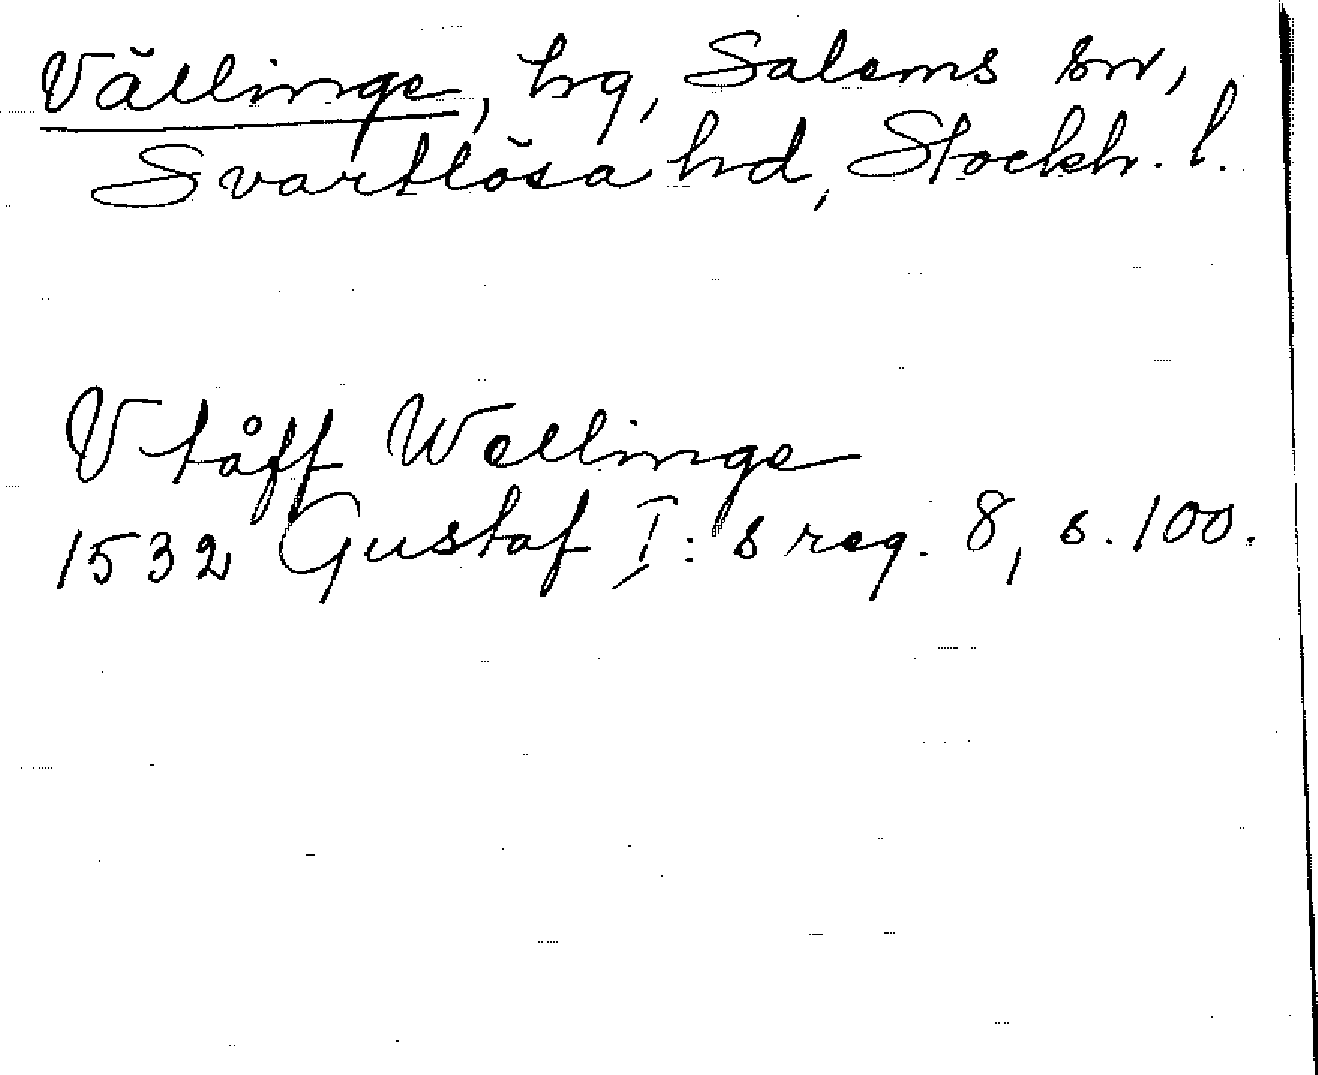 Vällinge, hg, Salems sn,
Svartlösa hd, Stockh. l.
V tåff Wellinge
1532 Gustaf I:s reg. 8, s. 100.